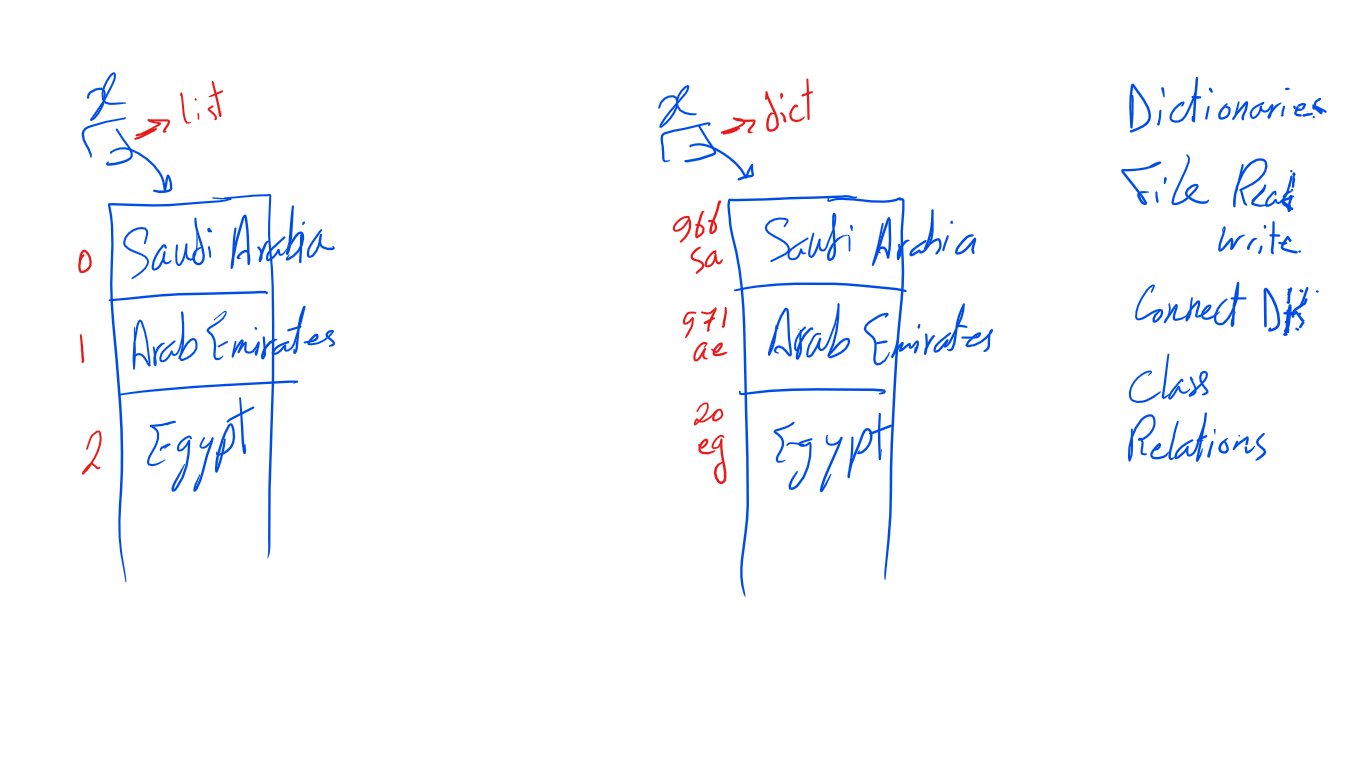 x
list
0
Saudi Arabia
1
Arab Emirates
2
Egypt
x
dict
966
sa
Saudi Arabia
971
ae
Arab Emirates
20
eg
Egypt
Dictionaries
File Read
write
Connect DB
Class
Relations